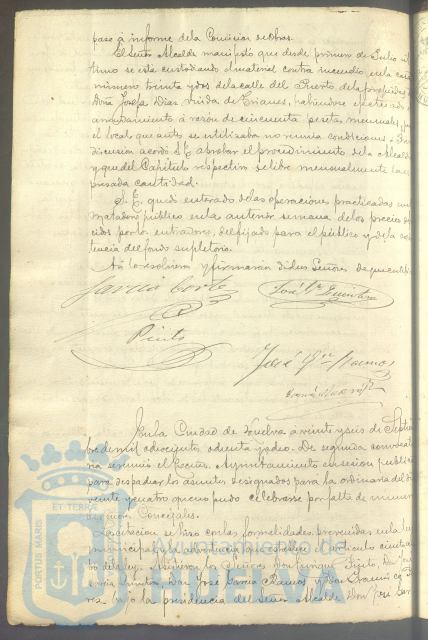 pase á informe de la Comision de Obras.
El Señor Alcalde manifestó que desde primero de Julio úl
timo se está custodiando el material contra incendio en la casa
número treinta y dos de la calle del Puerto de la propiedad de
Doña Josefa Dias viuda de habiendose
arrendamiento á razon de cincuenta pesetas mensuales, p
el local que antes se utilizaba no reunia condiciones. Sin
discusion acordó S. E. aprobar el procedimiento del Alcalde
y que del Capítulo respectivo se libre mensualmente la ex
presada cantidad.
S. E. quedó enterado de las operaciones practicadas en el
Matadero público en la anterior semana de los precios
por los entradores, del fijado para el público y de la exis
tencia del fondo supletorio.
Así lo resolvieron y firmarán dichos Señores de que certifico
García Cortés
José
Pinto
José Gª Ramos
En la Ciudad de Huelva á veinte y seis de Septiem
bre de mil ochocientos ochenta y ocho. De segunda convocato
ria se reunió el Excmo. Ayuntamiento en sesion pública
para despachar los asuntos designados para la ordinaria del dia
veinte y cuatro que no pudo celebrarse por falta de número
de Señores Concejales.
La citacion se hizo con las formalidades prevenidas en la ley
municipal y la advertencia que establece el artículo ciento
de la ley. Asistieron los Señores Don Enrique Pinto, Don
Don José García Ramos y Don
bajo la presidencia del Señor Alcalde Don José Gar
PORTUS MARIS ET TERRAE
Ayuntamiento de
HUELVA